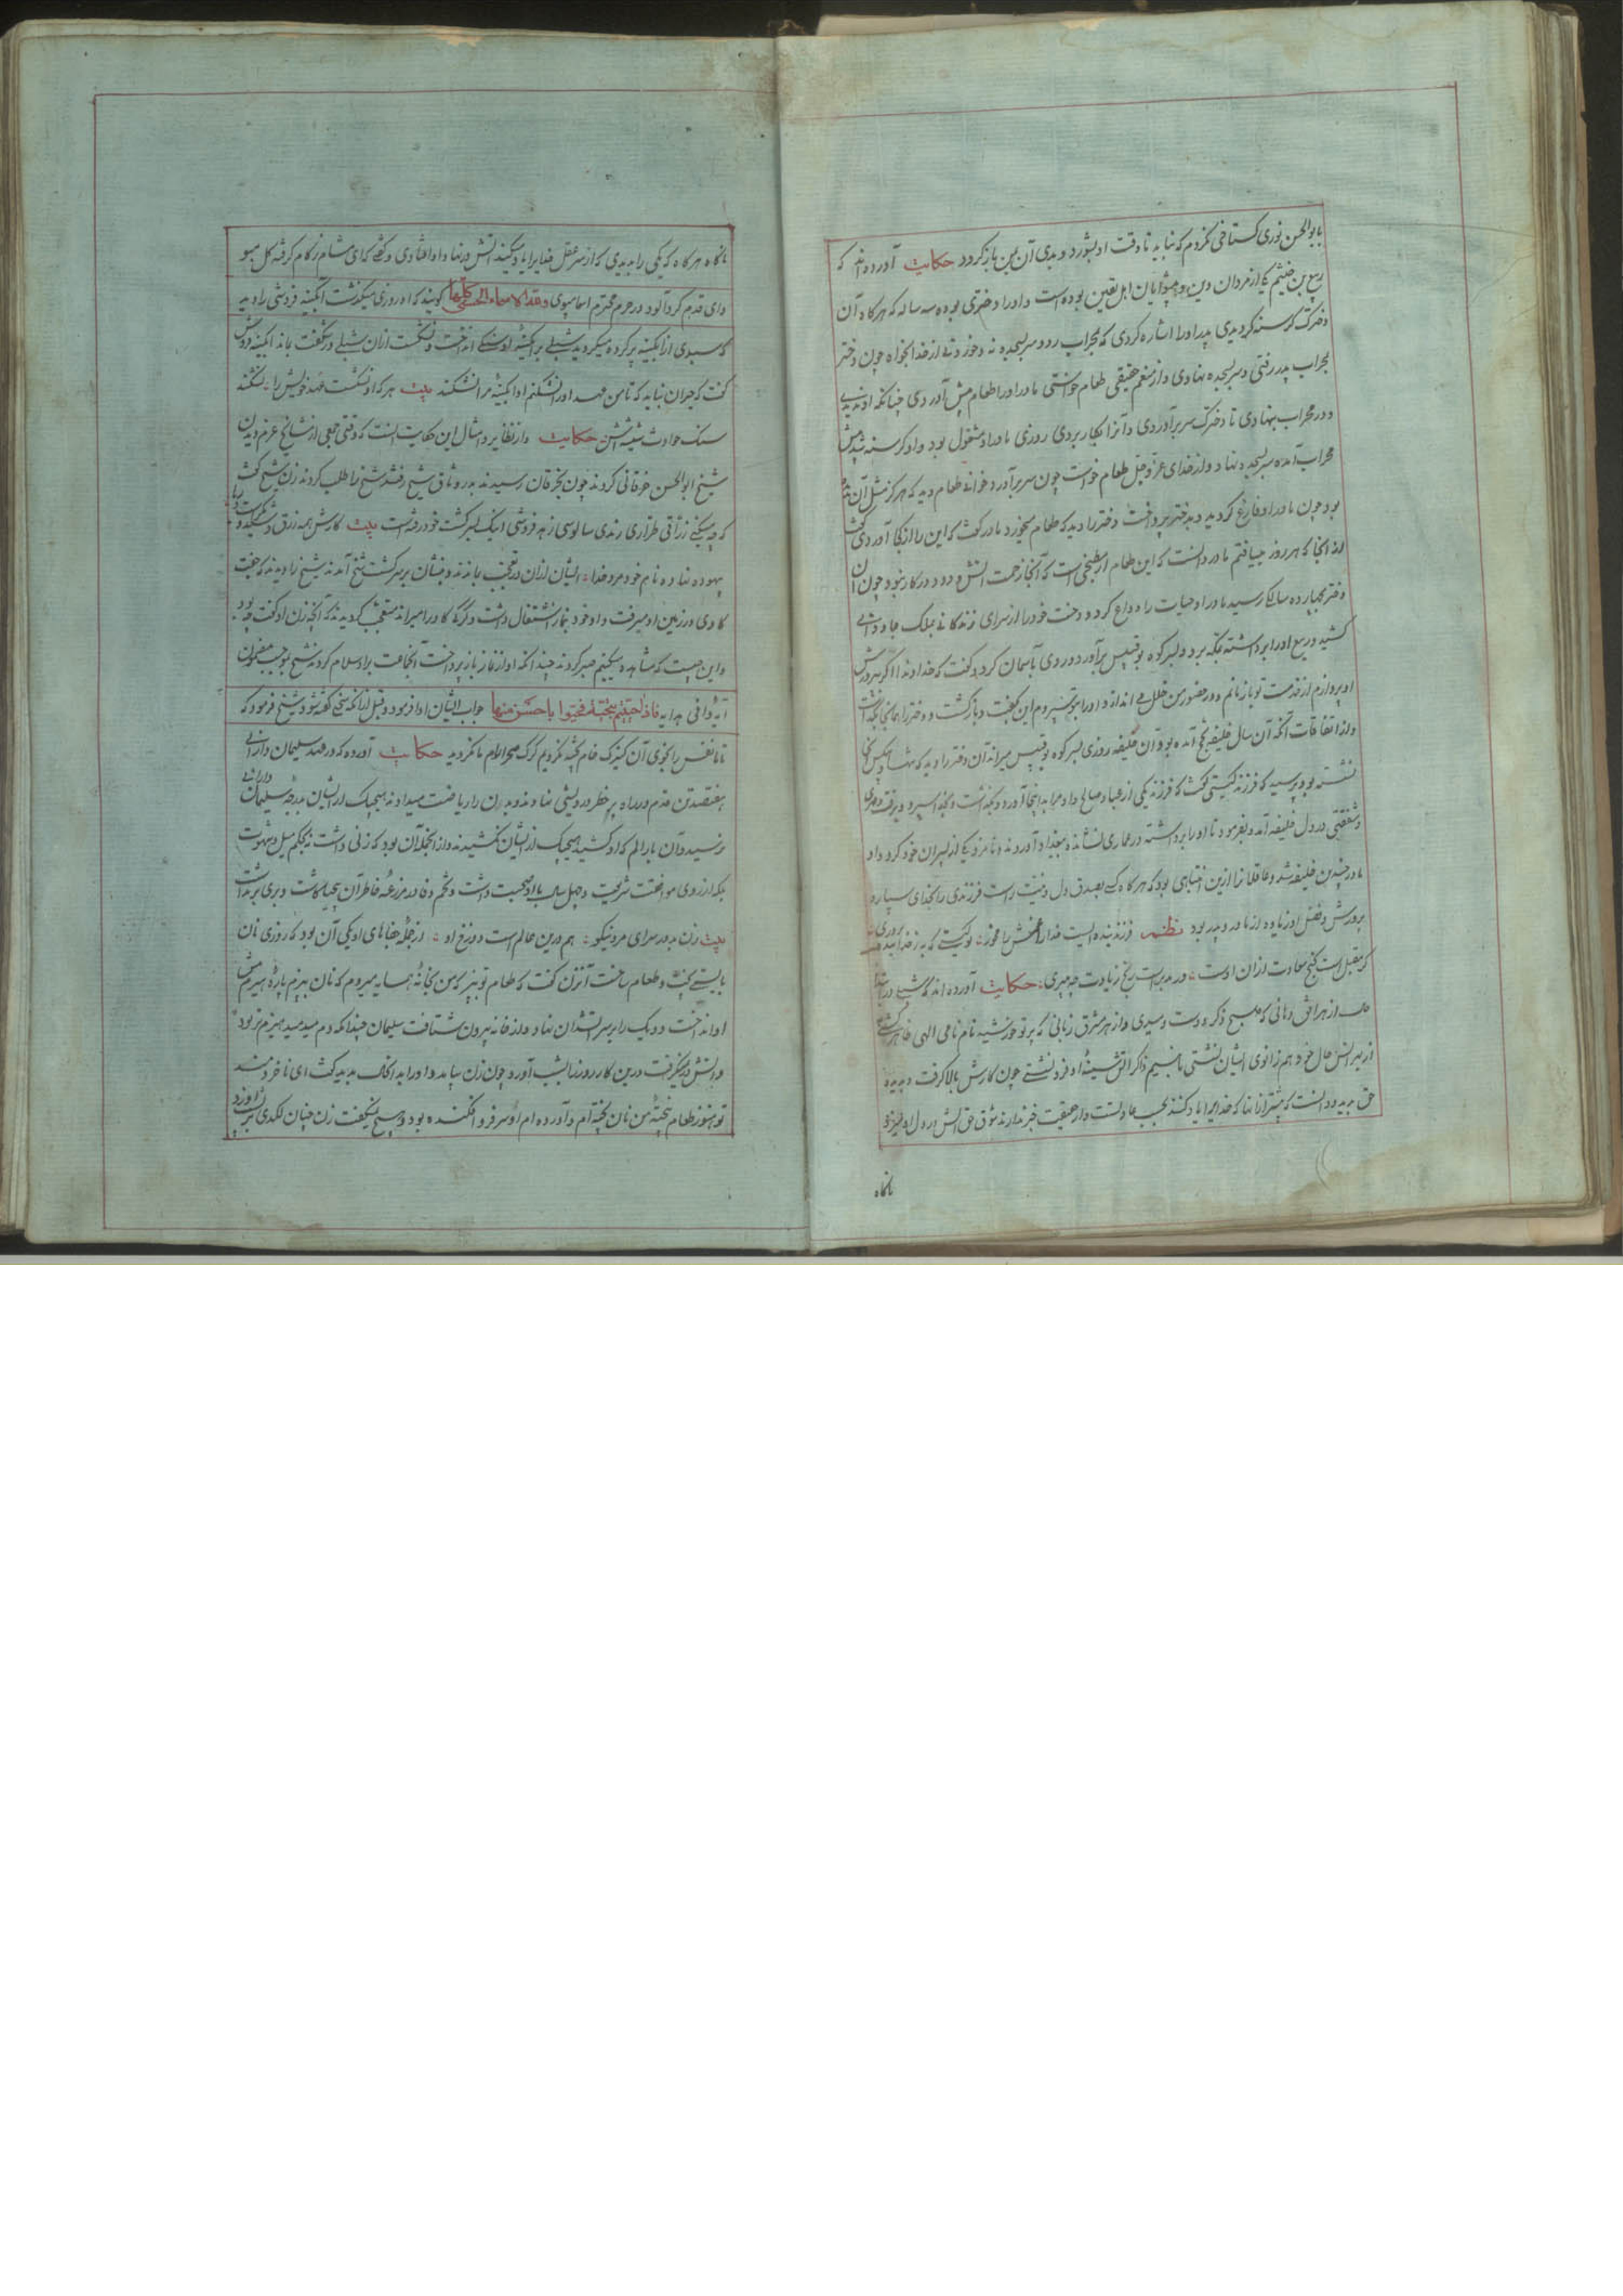 بابوالحسن نوری گستاخی نکردم که نباید تا وقت او بشورد و بدی آن بمن باز گردد حکایت آورده‌اند که
ربیع بن خثیم که از مردان دین و پیشوایان اهل یقین بوده است و او را دختری بوده سه ساله که هرگاه آن
دخترک گرسنه گردیدی پدر او را اشاره کردی که بمحراب رو و سر بسجده نه و خوردنی از خدا بخواه چون دختر
بمحراب پدر رفتی و سر بسجده نهادی و از منعم حقیقی طعام خواستی مادر او را طعام پیش آوردی چنانکه او ندیدی
و در محراب نهادی تا دخترک سر برآوردی و آنرا بکار بردی روزی مادر او مشغول بود و او گرسنه شد پیش
محراب آمده سر بسجده نهاد و از خدای عز و جل طعام خواست چون سر برآورد خوانی طعام دید که هرگز مثل آن ندیده
بود چون مادر او فارغ گردید و بدختر پرداخت دختر را دید که طعام میخورد مادر گفت که این را از کجا آوردی گفت
از آنجا که هر روز مییافتم مادر دانست که این طعام از مطبخی است که آنجا زحمت آتش و دود در کار نبود چون آن
دختر بچهارده سالگی رسید مادر او حیات را وداع کرد و رخت خود را از سرای زندگانی بملک جاودانی
کشید و ربیع او را برداشته بمکه برد و بر سر کوه بوقبیس برآورد و روی بآسمان کرد و گفت که خداوندا اگر بپرورش
او پردازم از خدمت تو باز مانم و در حضور من خلل می اندازد و او را بتو سپردم این بگفت و بازگشت و دختر را همانجا بگذاشت
و از اتفاقات آنکه آن سال خلیفه بحج آمده بود و آن خلیفه روزی بر سر کوه بوقبیس میراند آن دختر را دید که تنها و بیکس
نشسته بود پرسید که فرزند کیستی گفت که فرزند یکی از عباد صالح و او مرا بدینجا آورد و بگذاشت و بخدا سپرد و برفت مهری
و شفقتی در دل خلیفه آمد و بفرمود تا او را برداشته در عماری نشانده ببغداد آوردند و نامزد یکی از پسران خود کرد و او
مادر چندین خلیفه شد و عاقلانرا ازین انتباهی بود که هرگاه کسی بصدق دل و نیت راست فرزندی را بخدای سپارد
پرورش و فضل او زیاده از مادر و پدر بود نظم فرزند بنده ایست خدا را غمش مخور تو کیستی که به ز خدا بنده پروری
گر مقبل است گنج سعادت از آن اوست ور مدبرست رنج زیادت چه میبری حکایت آورده اند که شبلی در ابتدا
از هر افق دهانی که صبح ذکر دوست دمیدی و از هر مشرق زبانی که پرتو خورشید نام نامی الهی ظاهر گشتی
از بهر انس حال خود هم زانوی ایشان نشستی تا بنسیم ذکر آتش سینه او فرو نشستی چون کارش بالا گرفت و بدیده
حق بدید و دانست که بیشتر از آنها که خدایرا یاد کنند بحسب عادتست و از حقیقت خبر ندارند شوق حق آتش در دل او میزد
ناگاه
ناگاه هرگاه که یکی را بدیدی که از سر عقل خدایرا یاد میکند آتش در نهاد او افتادی و گفتی که ای مشام زکام گرفته گل مبو
و ای قدم گردآلود در حرم محترم اسما مپوی و هذه الاسماء الحسنی کلها گویند که او روزی میگذشت آبگینه فروشی را دید
که سبدی از آبگینه پر کرده میگردید شبلی بر آبگینه او سنگی انداخت و نشکست از آن شبلی در شگفت بماند آبگینه فروش
گفت که حیران نباید که تا من عهد او را نشکنم او آبگینه مرا نشکند بیت هر که او نشکست عهد خویش را نشکند
سنگ حوادث شیشه‌اش حکایت و از نظایر و امثال این حکایت است که وقتی جمعی از مشایخ عزم دیدن
شیخ ابوالحسن خرقانی کردند چون بخرقان رسیدند بدر وثاق شیخ رفتند شیخ را طلب کردند زن شیخ گفت
که چه میکنید زراقی طراری رندی سالوسی زهد فروشی اینک بسر کشت خود رفته است بیت کارش همه زرق و شید و
بیهوده نهاده نام خود مرد خدا ایشان از آن در تعجب بماندند و بنشان بر سر کشت شیخ آمدند شیخ را دیدند که جفت
گاوی در زمین او میرفت و او خود بنماز اشتغال داشت و گرگی گاو را میراند متعجب گردیدند که آنچه زن او گفت چه بود
و این چیست که مشاهده میکنیم صبر کردند چندانکه او از نماز باز پرداخت آنجماعت برو سلام کردند شیخ بموجب مضمون
آیه وافی هدایه فاذا حییتم بتحیة فحیوا باحسن منها جواب ایشان ادا فرمود و قبل از آنکه سخنی گفته شود شیخ فرمود که
تا ما نفس را بخوی آن کنیزک خام پخته نکردیم گرگ صحرا رام ما نگردید حکایت آورده که در عهد سلیمان دارانی
هفتصد تن قدم در راه پر خطر درویشی نهادند و بدن را ریاضت میدادند هیچیک از ایشان بدرجه سلیمان دارانی
نرسید و آن بار الم که او کشید هیچیک از ایشان نکشیدند و از آنجمله آن بود که زنی داشت نه بحکم میل و شهوت
بلکه از روی موافقت شریعت و چهل سال با او صحبت داشت و تخم وفا در مزرعه خاطر آن بیحیا کاشت و بری برنداشت
بیت زن بد در سرای مرد نیکو هم درین عالم است دوزخ او از جمله جفاهای او یکی آن بود که روزی نان
بایستی پخت و طعام ساخت آنزن گفت که طعام تو بپز که من بخانه همسایه میروم که نان بپزم پاره هیزم پیش
او انداخت و دیک را بر سر آتشدان نهاد و از خانه بیرون شتافت سلیمان چندانکه دم میدمید هیزم تر بود
و آتش در نمیگرفت درین کار روز را بشب آورد چون زن بیامد و او را بدانحال بدید گفت ای ناخردمند
تو هنوز طعام نپخته من نان پخته ام و آورده ام او سر فرو افکنده بود و هیچ نمیگفت زن چنان لکدی بر